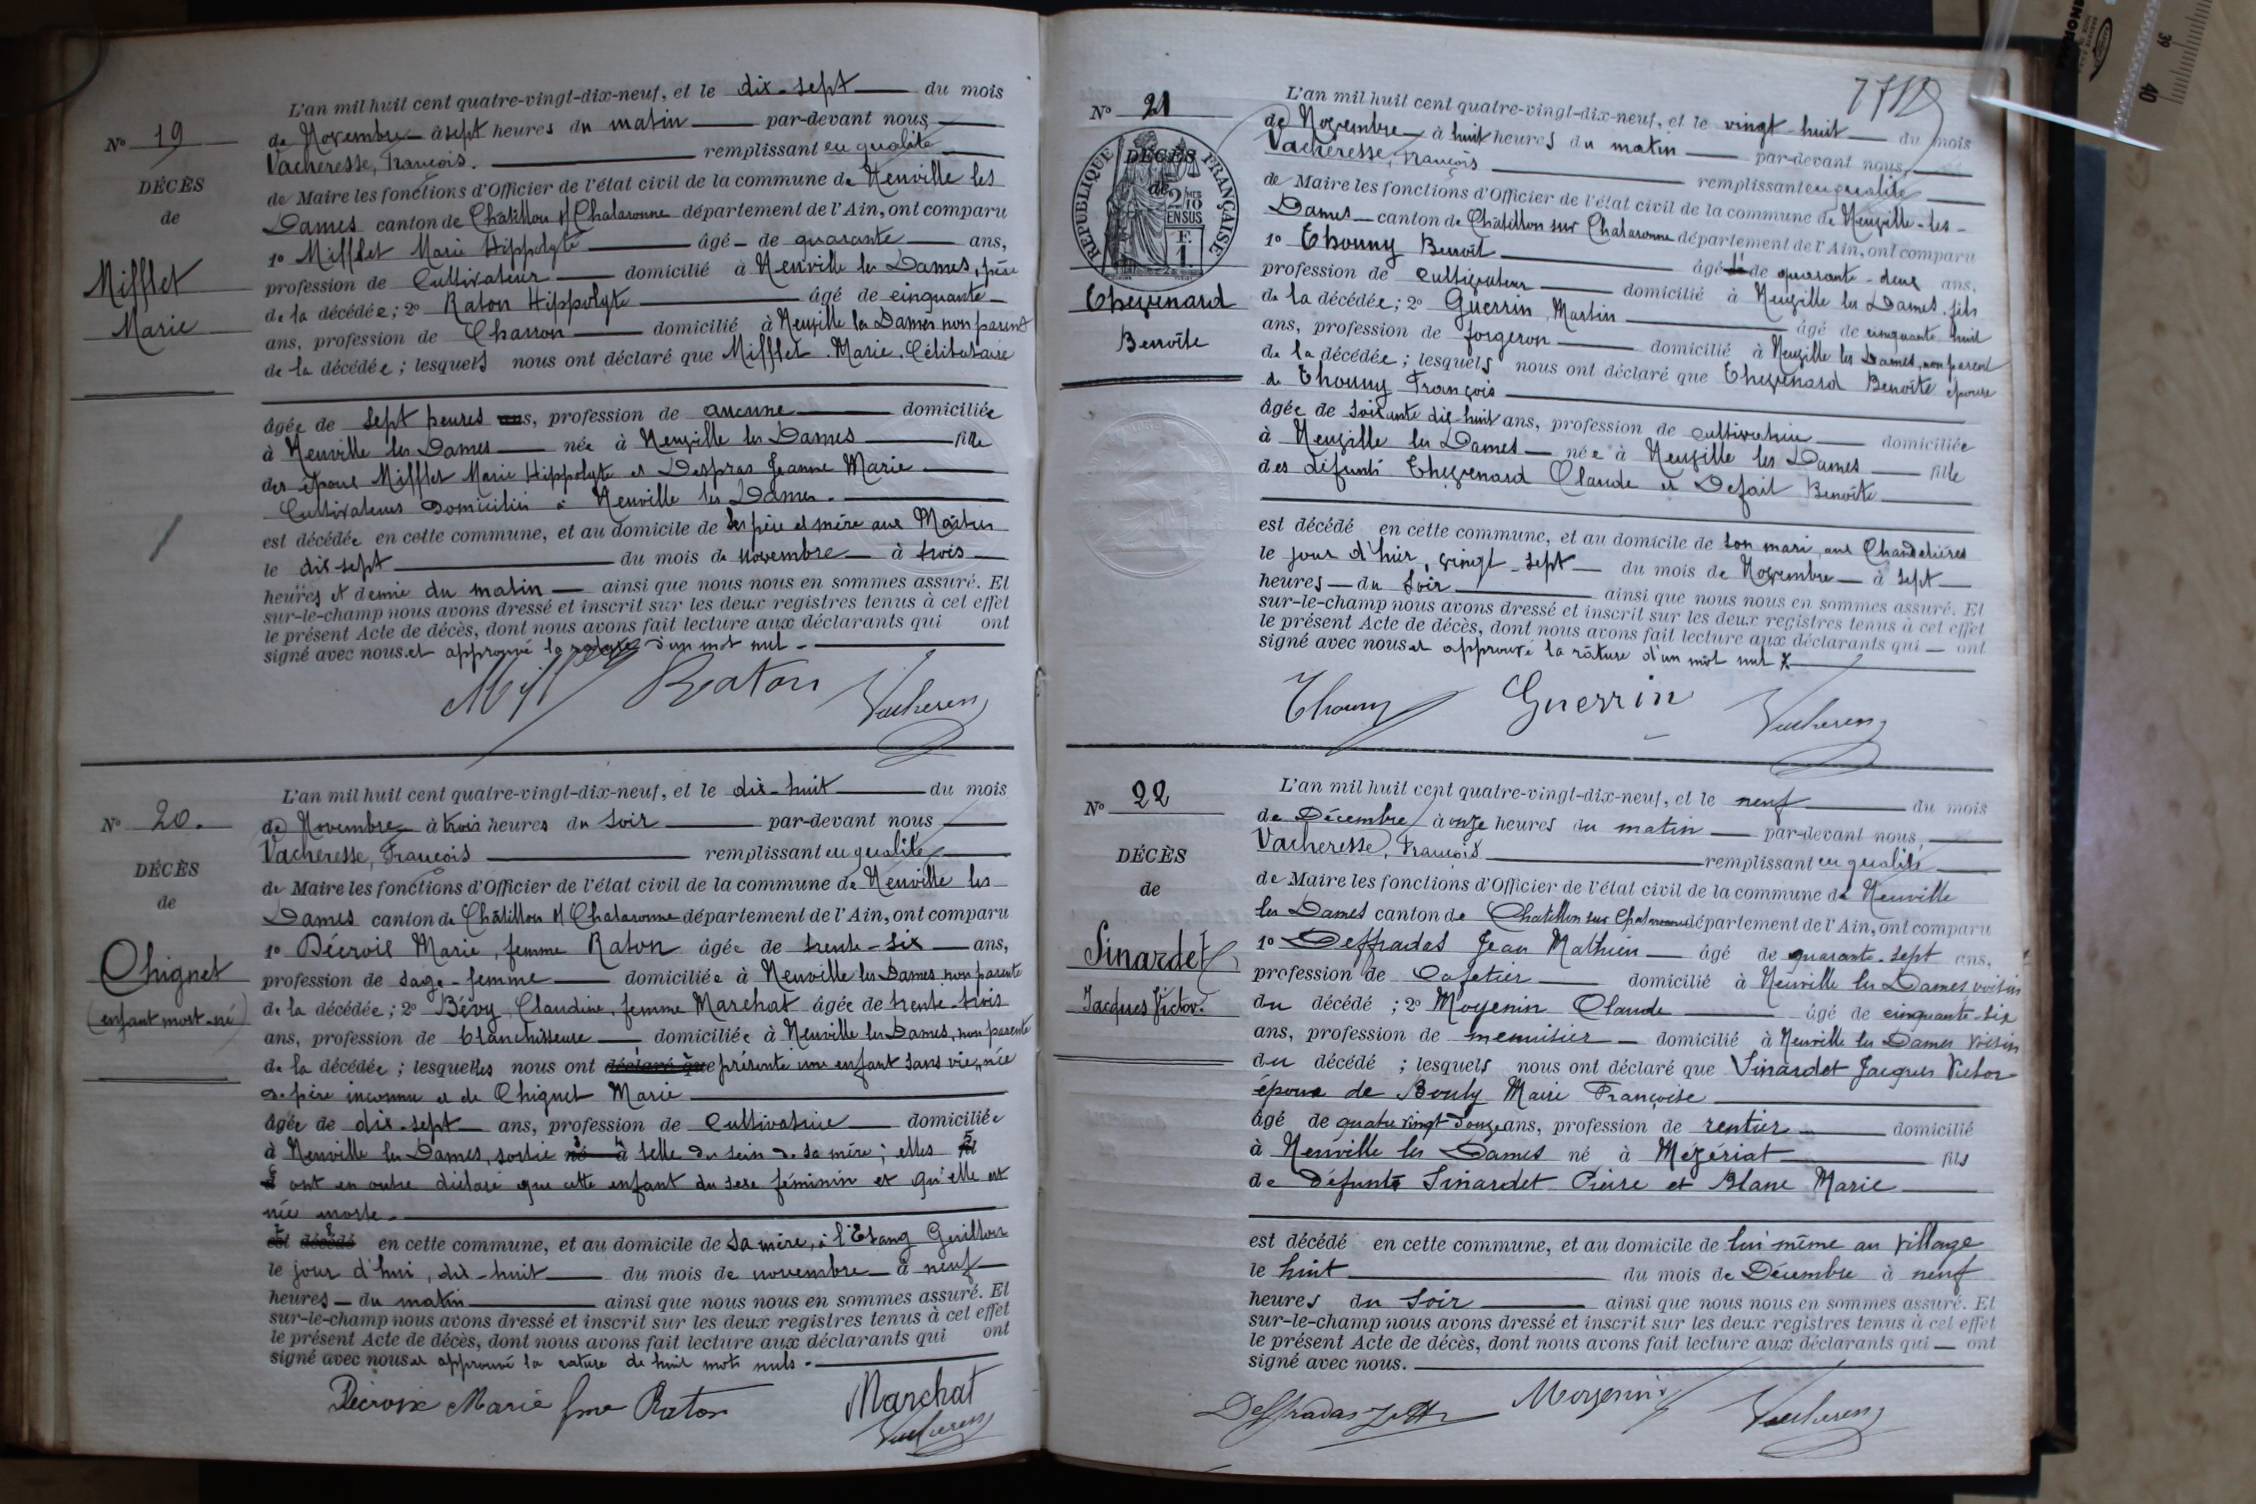 N° 19
DÉCÈS
de
Mifflet
Marie
L'an mil huit cent quatre-vingt-dix-neuf, et le dix-sept du mois
de Novembre à sept heures du matin par-devant nous
Vacheresse, François. remplissant en qualité
de Maire les fonctions d'Officier de l'état civil de la commune de Neuville les
Dames canton de Châtillon s/ Chalaronne département de l'Ain, ont comparu
1° Mifflet Marie Hippolyte âgé de quarante ans,
profession de Cultivateur domicilié à Neuville les Dames, père
de la décédée; 2° Raton Hippolyte âgé de cinquante
ans, profession de Charron domicilié à Neuville les Dames non parent
de la décédée; lesquels nous ont déclaré que Mifflet Marie. Célibataire
âgée de sept heures ans, profession de aucune domiciliée
à Neuville les Dames née à Neuville les Dames fille
des époux Mifflet Marie Hippolyte et Despras Jeanne Marie
Cultivateurs Domiciliés à Neuville les Dames.
est décédée en cette commune, et au domicile de ses père et mère aux
le dix-sept du mois de Novembre à trois
heures et demie du matin ainsi que nous nous en sommes assuré. Et
sur-le-champ nous avons dressé et inscrit sur les deux registres tenus à cet effet
le présent Acte de décès, dont nous avons fait lecture aux déclarants qui ont
signé avec nous et approuvé la rature d'un mot nul.
Raton Vacheresse
N° 20.
DÉCÈS
de
Chignet
(enfant mort-né)
L'an mil huit cent quatre-vingt-dix-neuf, et le dix-huit du mois
de Novembre à trois heures du soir par-devant nous
Vacheresse, François remplissant en qualité
de Maire les fonctions d'Officier de l'état civil de la commune de Neuville les
Dames canton de Châtillon s/ Chalaronne département de l'Ain, ont comparu
1° Décroix Marie, femme Raton âgée de trente-six ans,
profession de sage-femme domiciliée à Neuville les Dames non parente
de la décédée; 2° Bévy, Claudine, femme Marchat âgée de trente-trois
ans, profession de blanchisseuse domiciliée à Neuville les Dames, non parente
de la décédée; lesquelles nous ont déclaré que présenté une enfant sans vie, née
de père inconnu et de Chignet Marie
âgée de dix-sept ans, profession de Cultivatrice domiciliée
à Neuville les Dames, sortie né à telle du sein de sa mère; elles
ont en outre déclaré que cette enfant du sexe féminin et qu'elle est
née morte.
est décédé en cette commune, et au domicile de sa mère, à l'Etang Guillon
le jour d'hui, dix-huit du mois de novembre à neuf
heures du matin ainsi que nous nous en sommes assuré. Et
sur-le-champ nous avons dressé et inscrit sur les deux registres tenus à cet effet
le présent Acte de décès, dont nous avons fait lecture aux déclarants qui ont
signé avec nous et approuvé la rature de huit mots nuls.
Décroix Marie fme Raton Marchat
Vacheresse
N° 21
DÉCÈS
de
RÉPUBLIQUE FRANÇAISE
2/10 EN SUS
Thevenard
Benoîte
L'an mil huit cent quatre-vingt-dix-neuf, et le vingt-huit du mois
de Novembre à huit heures du matin par-devant nous,
Vacheresse, François remplissant en qualité
de Maire les fonctions d'Officier de l'état civil de la commune de Neuville-les-
Dames canton de Châtillon sur Chalaronne département de l'Ain, ont comparu
1° Thouny Benoît âgé de quarante-deux ans,
profession de cultivateur domicilié à Neuville les Dames, fils
de la décédée; 2° Guerrin Martin âgé de cinquante huit
ans, profession de forgeron domicilié à Neuville les Dames, non parent
de la décédée; lesquels nous ont déclaré que Thevenard Benoîte épouse
de Thouny François
âgée de soixante dix-huit ans, profession de cultivatrice domiciliée
à Neuville les Dames née à Neuville les Dames fille
des défunts Thevenard Claude et Defait Benoîte
est décédé en cette commune, et au domicile de son mari, aux Chandelières
le jour d'hier, vingt-sept du mois de Novembre à sept
heures du soir ainsi que nous nous en sommes assuré. Et
sur-le-champ nous avons dressé et inscrit sur les deux registres tenus à cet effet
le présent Acte de décès, dont nous avons fait lecture aux déclarants qui ont
signé avec nous et approuvé la râture d'un mot nul
Thouny Guerrin Vacheresse
N° 22
DÉCÈS
de
Sinardet
Jacques Victor.
L'an mil huit cent quatre-vingt-dix-neuf, et le neuf du mois
de Décembre à onze heures du matin par-devant nous,
Vacheresse, François remplissant en qualité
de Maire les fonctions d'Officier de l'état civil de la commune de Neuville
les Dames canton de Chatillon sur Chalaronne département de l'Ain, ont comparu
1° Deffradas Jean Mathieu âgé de quarante-sept ans,
profession de Cafetier domicilié à Neuville les Dames voisin
du décédé; 2° Moyenin Claude âgé de cinquante-six
ans, profession de menuisier domicilié à Neuville les Dames voisin
du décédé; lesquels nous ont déclaré que Sinardet Jacques Victor
époux de Bouly Marie Françoise
âgé de quatre vingt douze ans, profession de rentier domicilié
à Neuville les Dames né à Mézériat fils
de Défunts Sinardet Pierre et Blanc Marie
est décédé en cette commune, et au domicile de lui même au village
le huit du mois de Décembre à neuf
heures du soir ainsi que nous nous en sommes assuré. Et
sur-le-champ nous avons dressé et inscrit sur les deux registres tenus à cet effet
le présent Acte de décès, dont nous avons fait lecture aux déclarants qui ont
signé avec nous.
Deffradas Moyenin Vacheresse
39
40